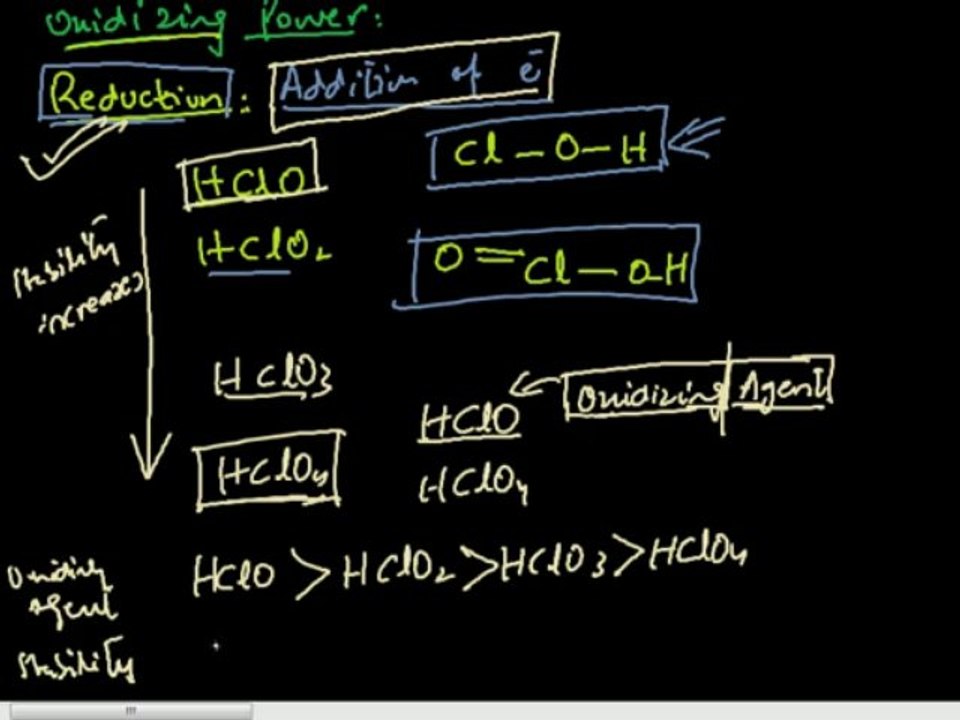 Oxidizing Power:
Reduction: Addition of e̅
HClO Cl - O - H
HClO₂ O = Cl - OH
Stability increases
HClO3
HClO ← Oxidizing Agent
HClO₄ HClO₄
Oxidizing agent HClO > HClO₂ > HClO3 > HClO₄
Stability